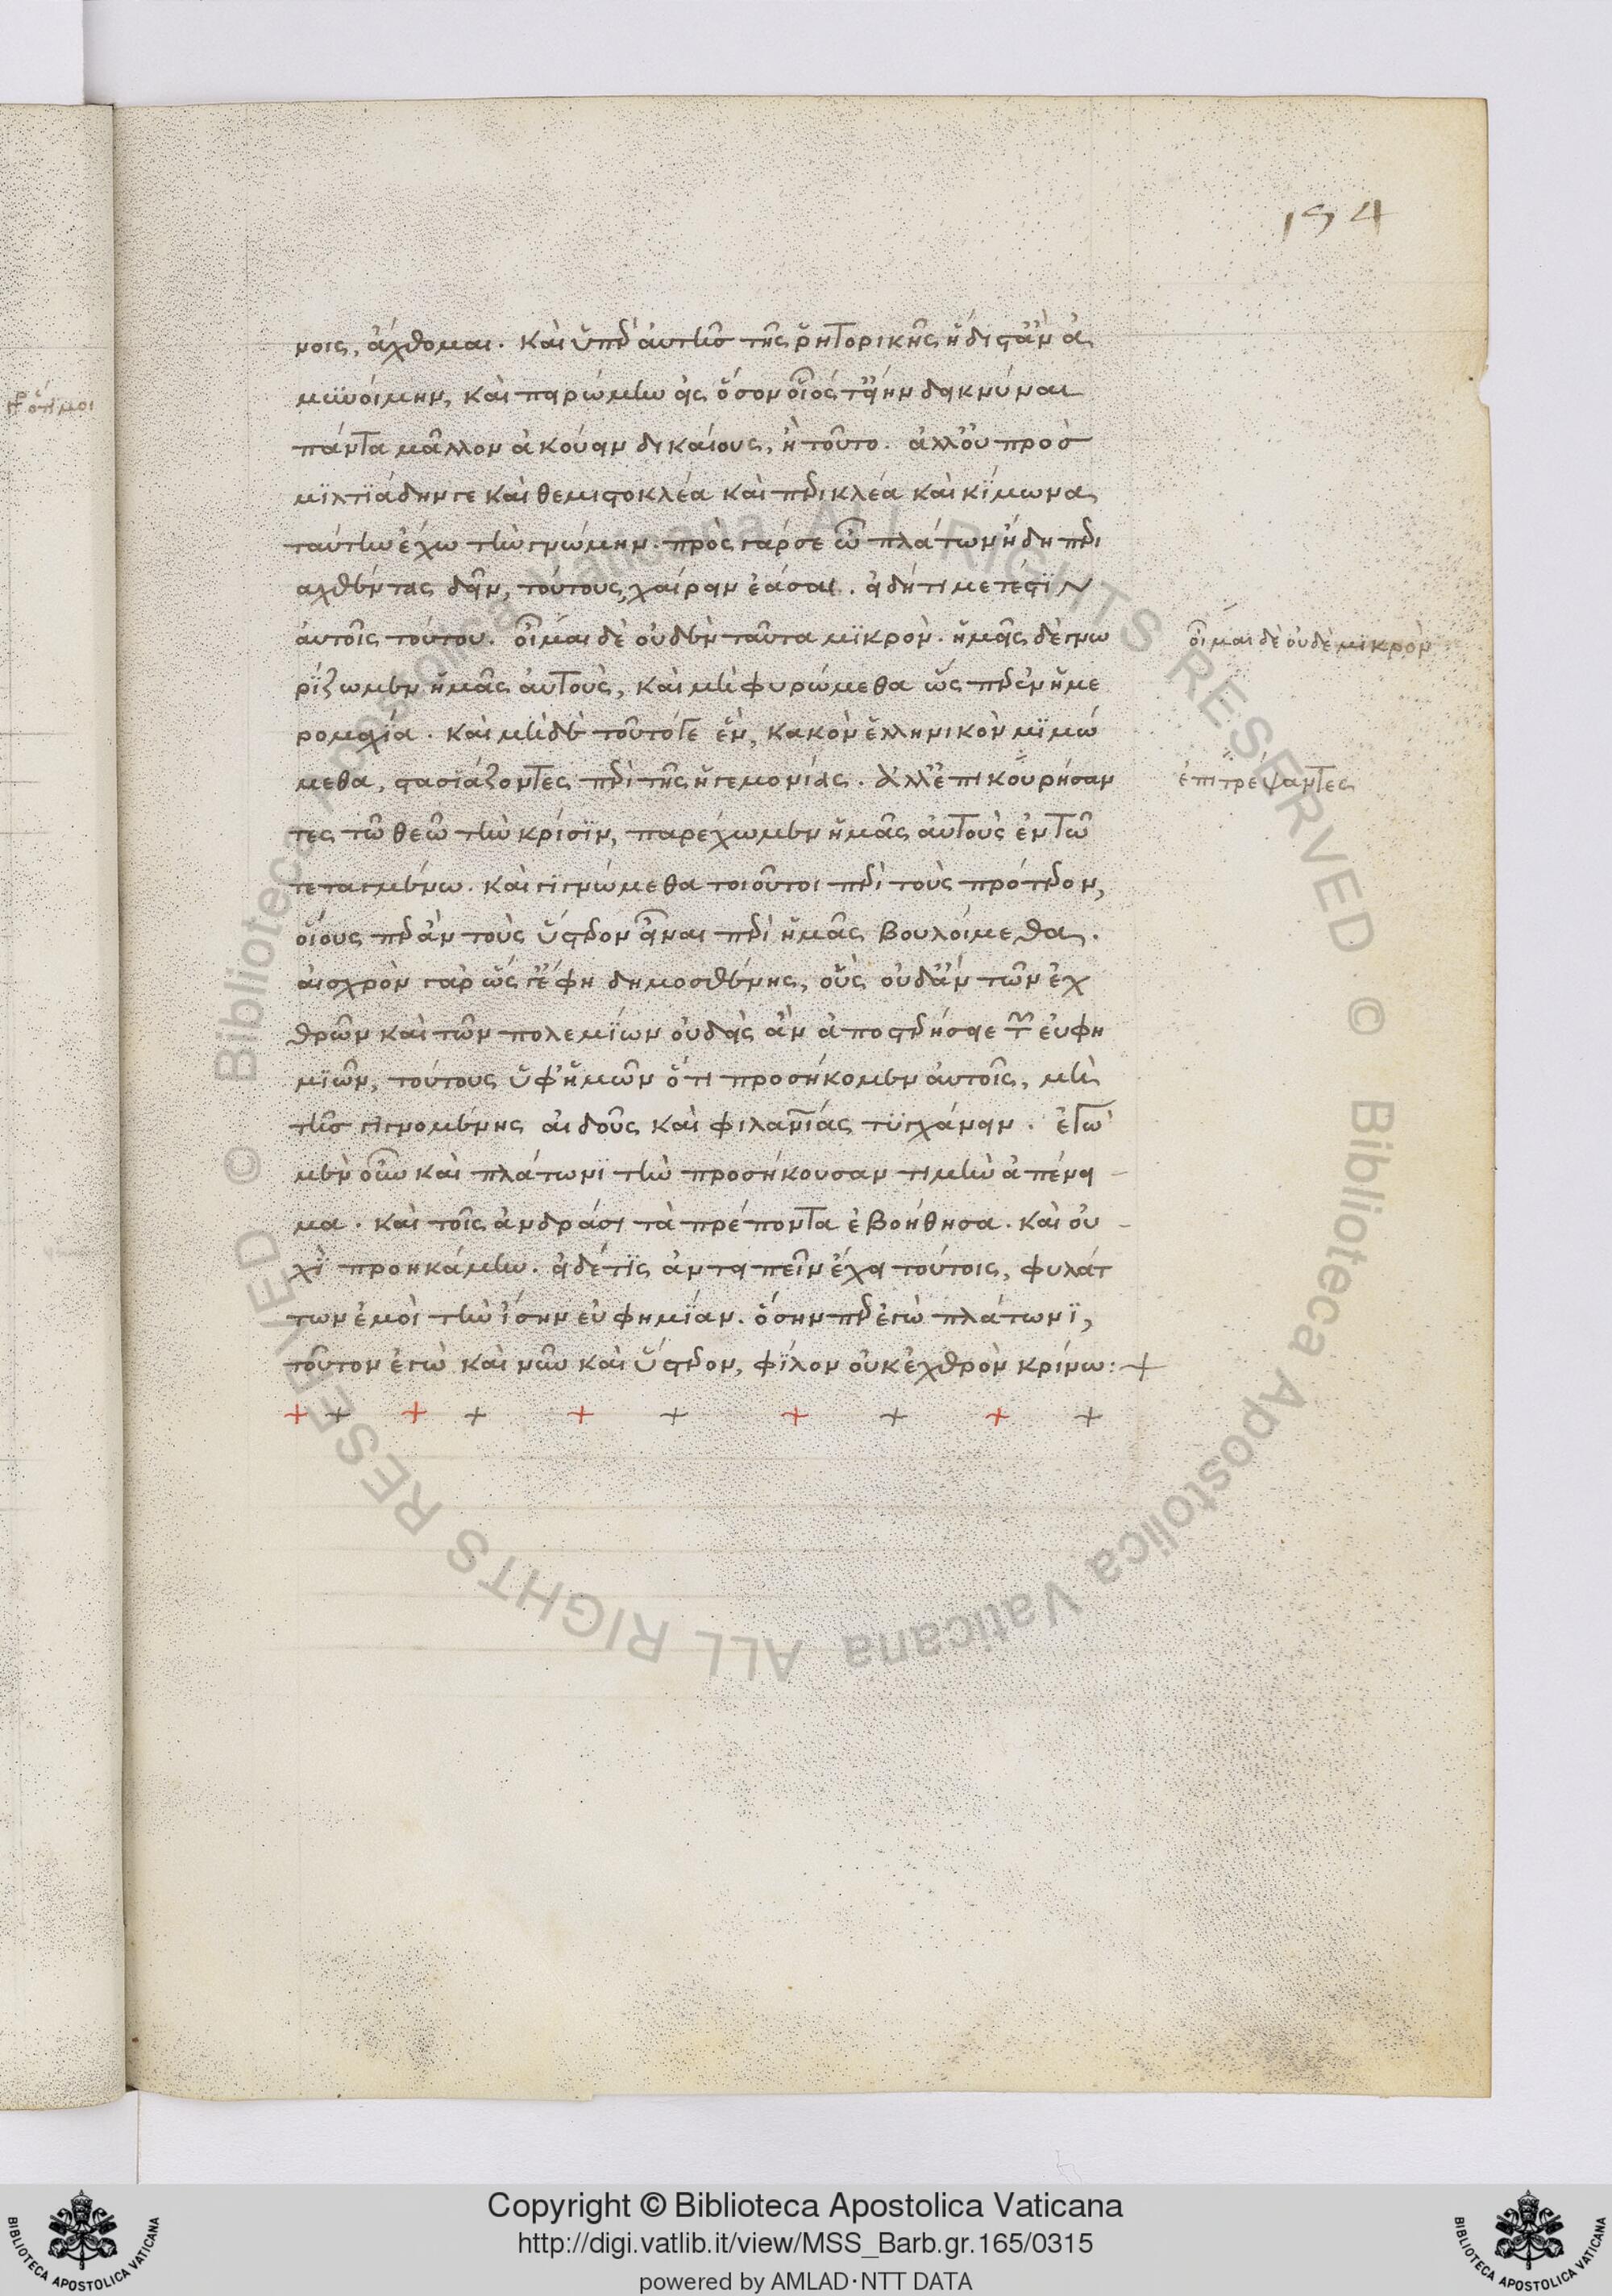 154
νοις, ἄχθομαι. καὶ ὑπὲρ αὐτῆς τῆς ῥητορικῆς ἥδιστ ἂν ἀ
μυνοίμην, καὶ πειρώμην εἰς ὅσον οἷός τ εἴην δεικνύναι
πάντα μᾶλλον ἀκούειν δικαίους, ἢ τοῦτο. ἀλλ οὐ πρὸς
μϊλτϊάδην γε καὶ θεμιστοκλέα καὶ περικλέα καὶ κίμωνα
ταύτην ἔχω τὴν γνώμην. πρὸς γάρ σε ὦ πλάτων ἤδη περι
αλθέντας δεῖν, τούτους, χαίρειν ἐάσαι. εἰ δή τι μετέστϊν
αὐτοῖς τούτου. οἶμαι δὲ οὐδὲν ταῦτα μϊκρὸν. ἡμᾶς δὲ γνω
ρϊζωμεν ἡμᾶς αὐτοὺς, καὶ μὴ φυρώμεθα ὥσπερ ἐν ἡμε
ρομαχία. καὶ μὴ δὲ τοῦτό γε ἓν, κακὸν ἑλληνικὸν μϊμώ
μεθα, στασϊάζοντες περὶ τῆς ἡγεμονίας. ἀλλ ἐπικουρήσαν
τες τῶ θεῶ τὴν κρίσϊν, παρέχωμεν ἡμᾶς αὐτοὺς ἐν τῶ
τεταγμένω. καὶ γϊγνώμεθα τοιοῦτοι περὶ τοὺς πρότερον,
οἵους περ ἂν τοὺς ὕστερον εἶναι περὶ ἡμᾶς βουλοίμεθα.
αἰσχρὸν γὰρ ὥς γ ἔφη δημοσθένης, οὓς οὐδ ἂν τῶν ἐχ
θρῶν καὶ τῶν πολεμίων οὐδεὶς ἂν ἀποστερήσειε τῶν εὐφη
μϊῶν, τούτους ὑφ ἡμῶν ὅτι προσήκομεν αὐτοῖς, μὴ
τῆς γιγνομένης αἰδοῦς καὶ φιλανίας τυγχάνειν. ἐγὼ
μὲν οὖν καὶ πλάτωνϊ τὴν προσήκουσαν τιμὴν ἀπένει
μα. καὶ τοῖς ἀνδράσι τὰ πρέποντα ἐβοήθησα. καὶ οὐ
χὶ προηκάμην. εἰ δέ τϊς ἀντειπεῖν ἔχει τούτοις, φυλάτ
των ἐμοὶ τὴν ἴσην εὐφημίαν. ὅσην περ ἐγὼ πλάτωνϊ,
τοῦτον ἐγὼ καὶ νῦν καὶ ὕστερον, φίλον οὐκ ἐχθρὸν κρίνω:+
+ + + + + + + + + +
οἶμαι δὲ οὐδὲ μϊκρὸν
ἐπιτρέψαντες
ὅτι μοι
Copyright © Biblioteca Apostolica Vaticana
http://digi.vatlib.it/view/MSS_Barb.gr.165/0315
powered by AMLAD·NTT DATA
BIBLIOTECA APOSTOLICA VATICANA
BIBLIOTECA APOSTOLICA VATICANA
© Biblioteca Apostolica Vaticana ALL RIGHTS RESERVED © Biblioteca Apostolica Vaticana ALL RIGHTS RESERVED